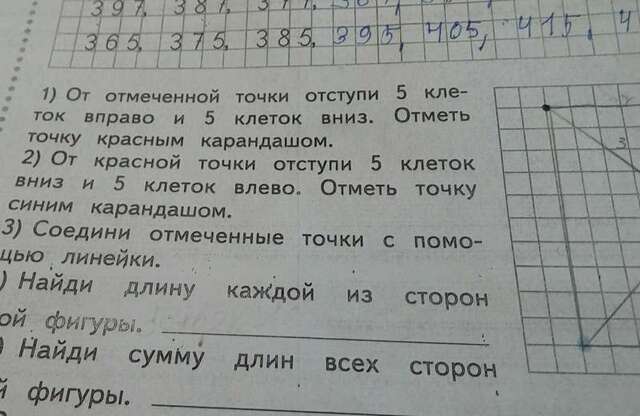 397, 387,
365, 375, 385, 395, 405, 415, 4
1) От отмеченной точки отступи 5 кле-
ток вправо и 5 клеток вниз. Отметь
точку красным карандашом.
2) От красной точки отступи 5 клеток
вниз и 5 клеток влево. Отметь точку
синим карандашом.
3) Соедини отмеченные точки с помо-
щью линейки.
) Найди длину каждой из сторон
ой фигуры.
) Найди сумму длин всех сторон
й фигуры.
3